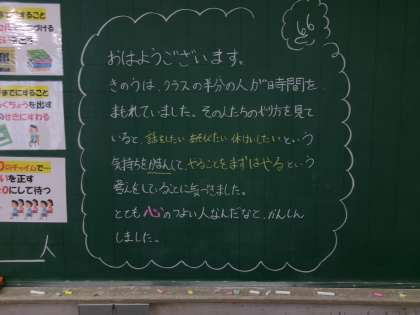 おはようございます。
きのうは、クラスの半分の人が時間を
まもれていました。その人たちのやり方を見て
いると、話をしたい あそびたい 休けいしたい という
気持ちをがまんして、やることをまずはやる という
ことに気づきました。
とても心のつよい人なんだなと、かんしん
しました。
にすること
までにすること
にすわる
チャイムで…
を正す
にして待つ
人